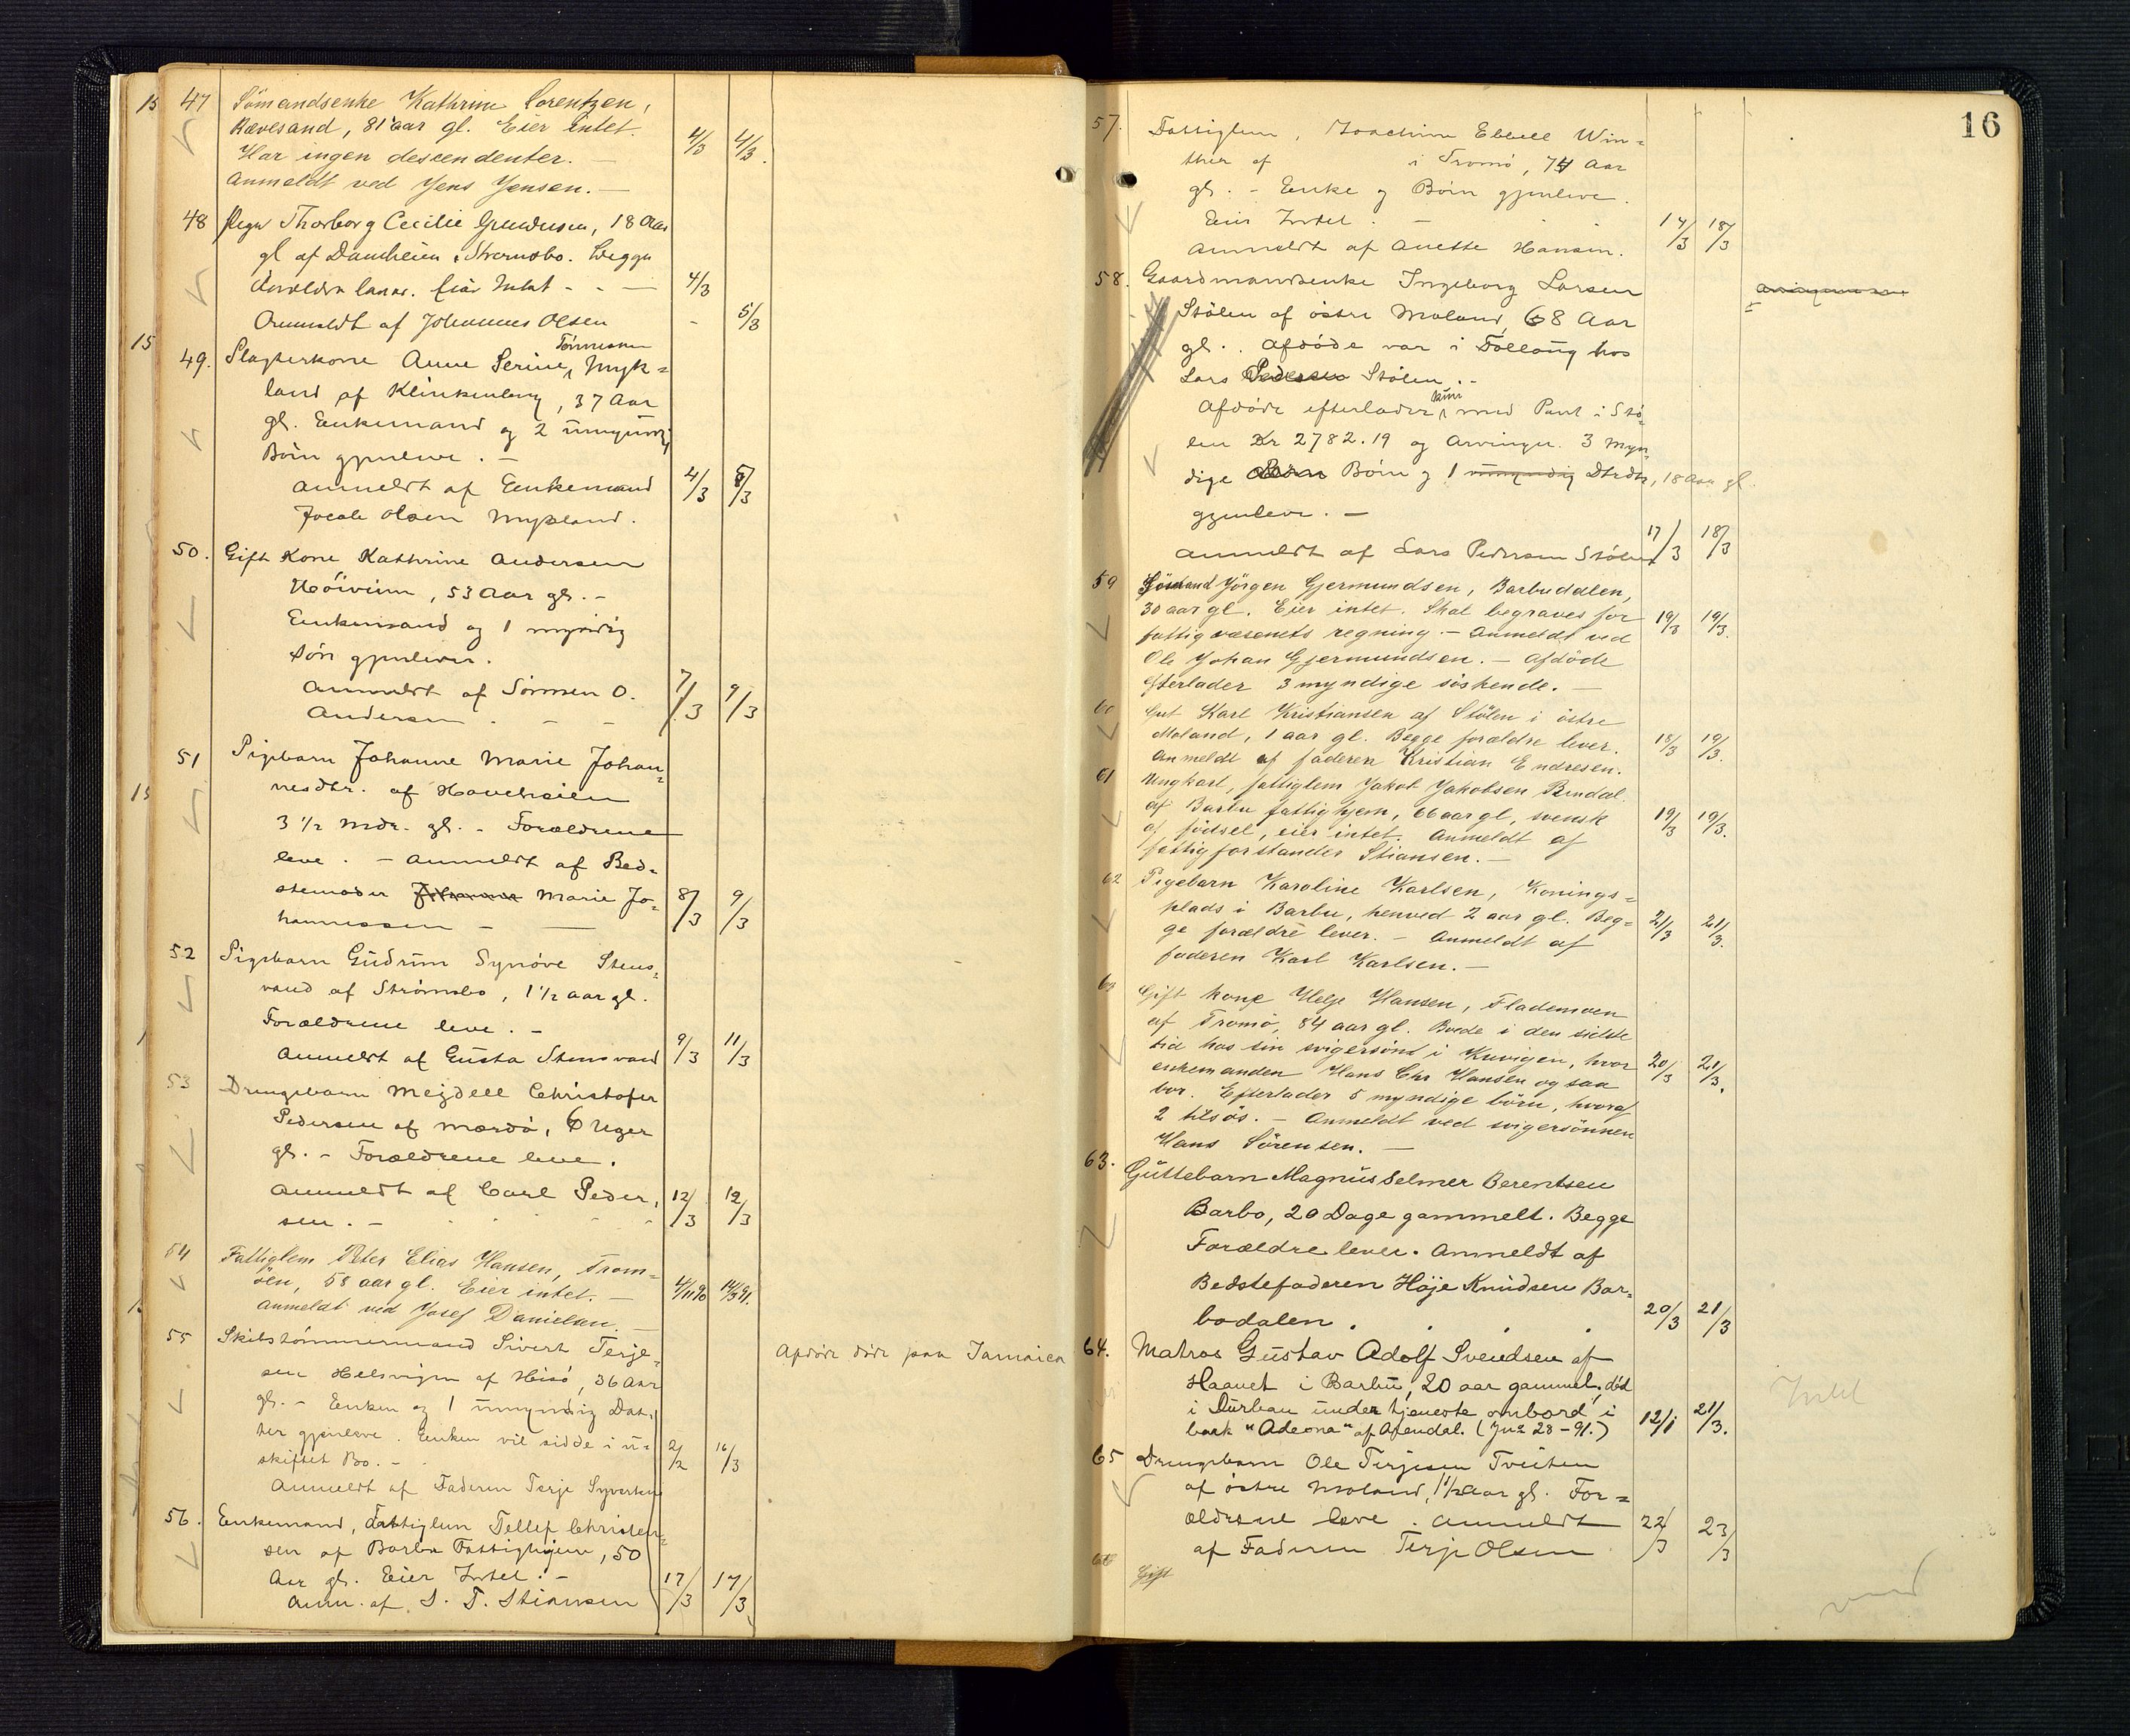 47 Sömandsenke Kathrine Lorentzen,
Rævesand, 81 aar gl. Eier intet.
Har ingen descendenter. — 4/3 4/3.
Anmeldt ved Jens Jensen. —
48 Pige Thorborg Cecilie Gundersen, 18 Aar
gl af Damheien i Strømsbo. Begge
Forældre lever. Eier Intet - - — 4/3
Anmeldt af Johannes Olsen - 5/3
Tönnesen
49. Slagterkone Anne Serine, Myk=
land af Klinkenberg, 37 Aar
gl. Enkemand og 2 umyndig
Börn gjenleve. —
Anmeldt af Enkemand 4/3 5/3
Jocob Olsen Mykland.
50. Gift Kone Kathrine Andersen
Höivim, 53 Aar gl. -
Enkemand og 1 myndig
Sön gjenlever.
Anmeldt af Sörensen O. 7/3 9/3
Andersen . - -
51 Pigebarn Johanne Marie Johan=
nesdtr. af Havehseien
3 1/2 Mdr. gl. - Forældrene
leve. - Anmeldt af Bed=
stemoder Johanne Marie Jo= 8/3 9/3
hannessen - —
52 Pigebarn Gudrun Synöve Stens=
vand af Strömsbo, 1 1/2 aar gl.
Forældrene leve. -
Anmeldt af Gusta Stensvand 9/3 11/3
53 Drengebarn Mejdell Christofer
Pedersen af Mærdö, 6 Uger
gl. - Forældrene leve.
Anmeldt af Carl Peder= 12/3 12/3
sen. -
54 Fattiglem Peter Elias Hansen, Trom=
öen, 58 aar gl. Eier intet. — 4/11 90 14/3 91.
Anmeldt ved Josef Danielsen. —
55 Skibstömmermand Sivert Terje= Afdöde döde paa Jamaica
sen Helsvigen af Hisö, 36 Aar
gl. - Enken og 1 umyndig Dat=
ter gjenleve. Enken vil sidde i u=
skiftet Bo. - 2/2 16/3
Anmeldt af Faderen Terje Syvertsen
56. Enkemand, Fattiglem Tellef Christen=
sen af Barbu Fattighjem, 50
Aar gl. Eier Intet. - 17/3 17/3
Anm. af S. T. Stiansen
16
57. Fattiglem, Joachim Ebbell Win=
ther af i Tromö, 74 Aar
gl. - Enke og Börn gjenleve.
Eier Intet. - 17/3 18/3
Anmeldt af Anette Hansen.
58. Gaardmandsenke Ingeborg Larsen
Stölen af östre Moland, 68 Aar
gl.. Afdöde var i Follaug hos
Lars Pedersen Stölen. -
Afdöde efterlader, med Pant i Stö=
len Kr 2782.19 og Arvinger. 3 Myn=
dige Börn og 1 umyndig Dtrdtr, 18 Aar gl.
gjenleve. —
Anmeldt af Lars Pedersen Stölen 17/3 18/3
59 Sömand Jörgen Gjermundsen, Barbudalen,
30 aar gl. Eier intet. Skal begraves for 19/3 19/3.
fattigvæsenets regning. — Anmeldt ved
Ole Johan Gjermundsen. — Afdöde
efterlader 3 myndige söskende. —
60 Gut Karl Kristiansen af Stölen i östre
Moland, 1 aar gl. Begge forældre lever. 18/3 19/3.
Anmeldt af faderen Kristian Endresen.
61 Ungkarl, fattiglem Jakob Jakobsen Rendal
af Barbu fattighjem, 66 aar gl, svensk 19/3 19/3.
af födsel, eier intet. Anmeldt af
fattigforstander Stiansen. —
62 Pigebarn Karoline Karlsen, Konings=
plads i Barbu, henved 2 aar gl. Beg= 21/3 21/3.
ge forældre lever. — Anmeldt af
faderen Karl Karlsen. —
Gift kone Helje Hansen, Flademoen
af Tromö, 84 aar gl. Boede i den sidste
tid hos sin svigersönd i Kuvigen, hvor 20/3 21/3.
enkemanden Hans Chr Hansen og saa
bor. Efterlader 5 myndige börn, hvoraf
2 tilsös. — Anmeldt ved svigersönnen
Hans Sörensen. —
63. Guttebarn Magnus Selmer Berentsen
Barbo, 20 Dage gammelt. Begge
Forældre lever. Anmeldt af
Bedstefaderen Höje Knudsen Bar=
bodalen. 20/3 21/3
64. Matros Gustav Adolf Svendsen af
Haavet i Barbu, 20 aar gammel, död Intet
i Durban under tjeneste ombord i
bark "Adeona" af Arendal. (Jnr 28-91.) 12/1 21/3.
65 Drengebarn Ole Terjesen Tveiten
af östre Moland, 1 1/2 aar gl. For=
ældrene leve. Anmeldt 22/3 23/3
af Faderen Terje Olsen
66 Gift